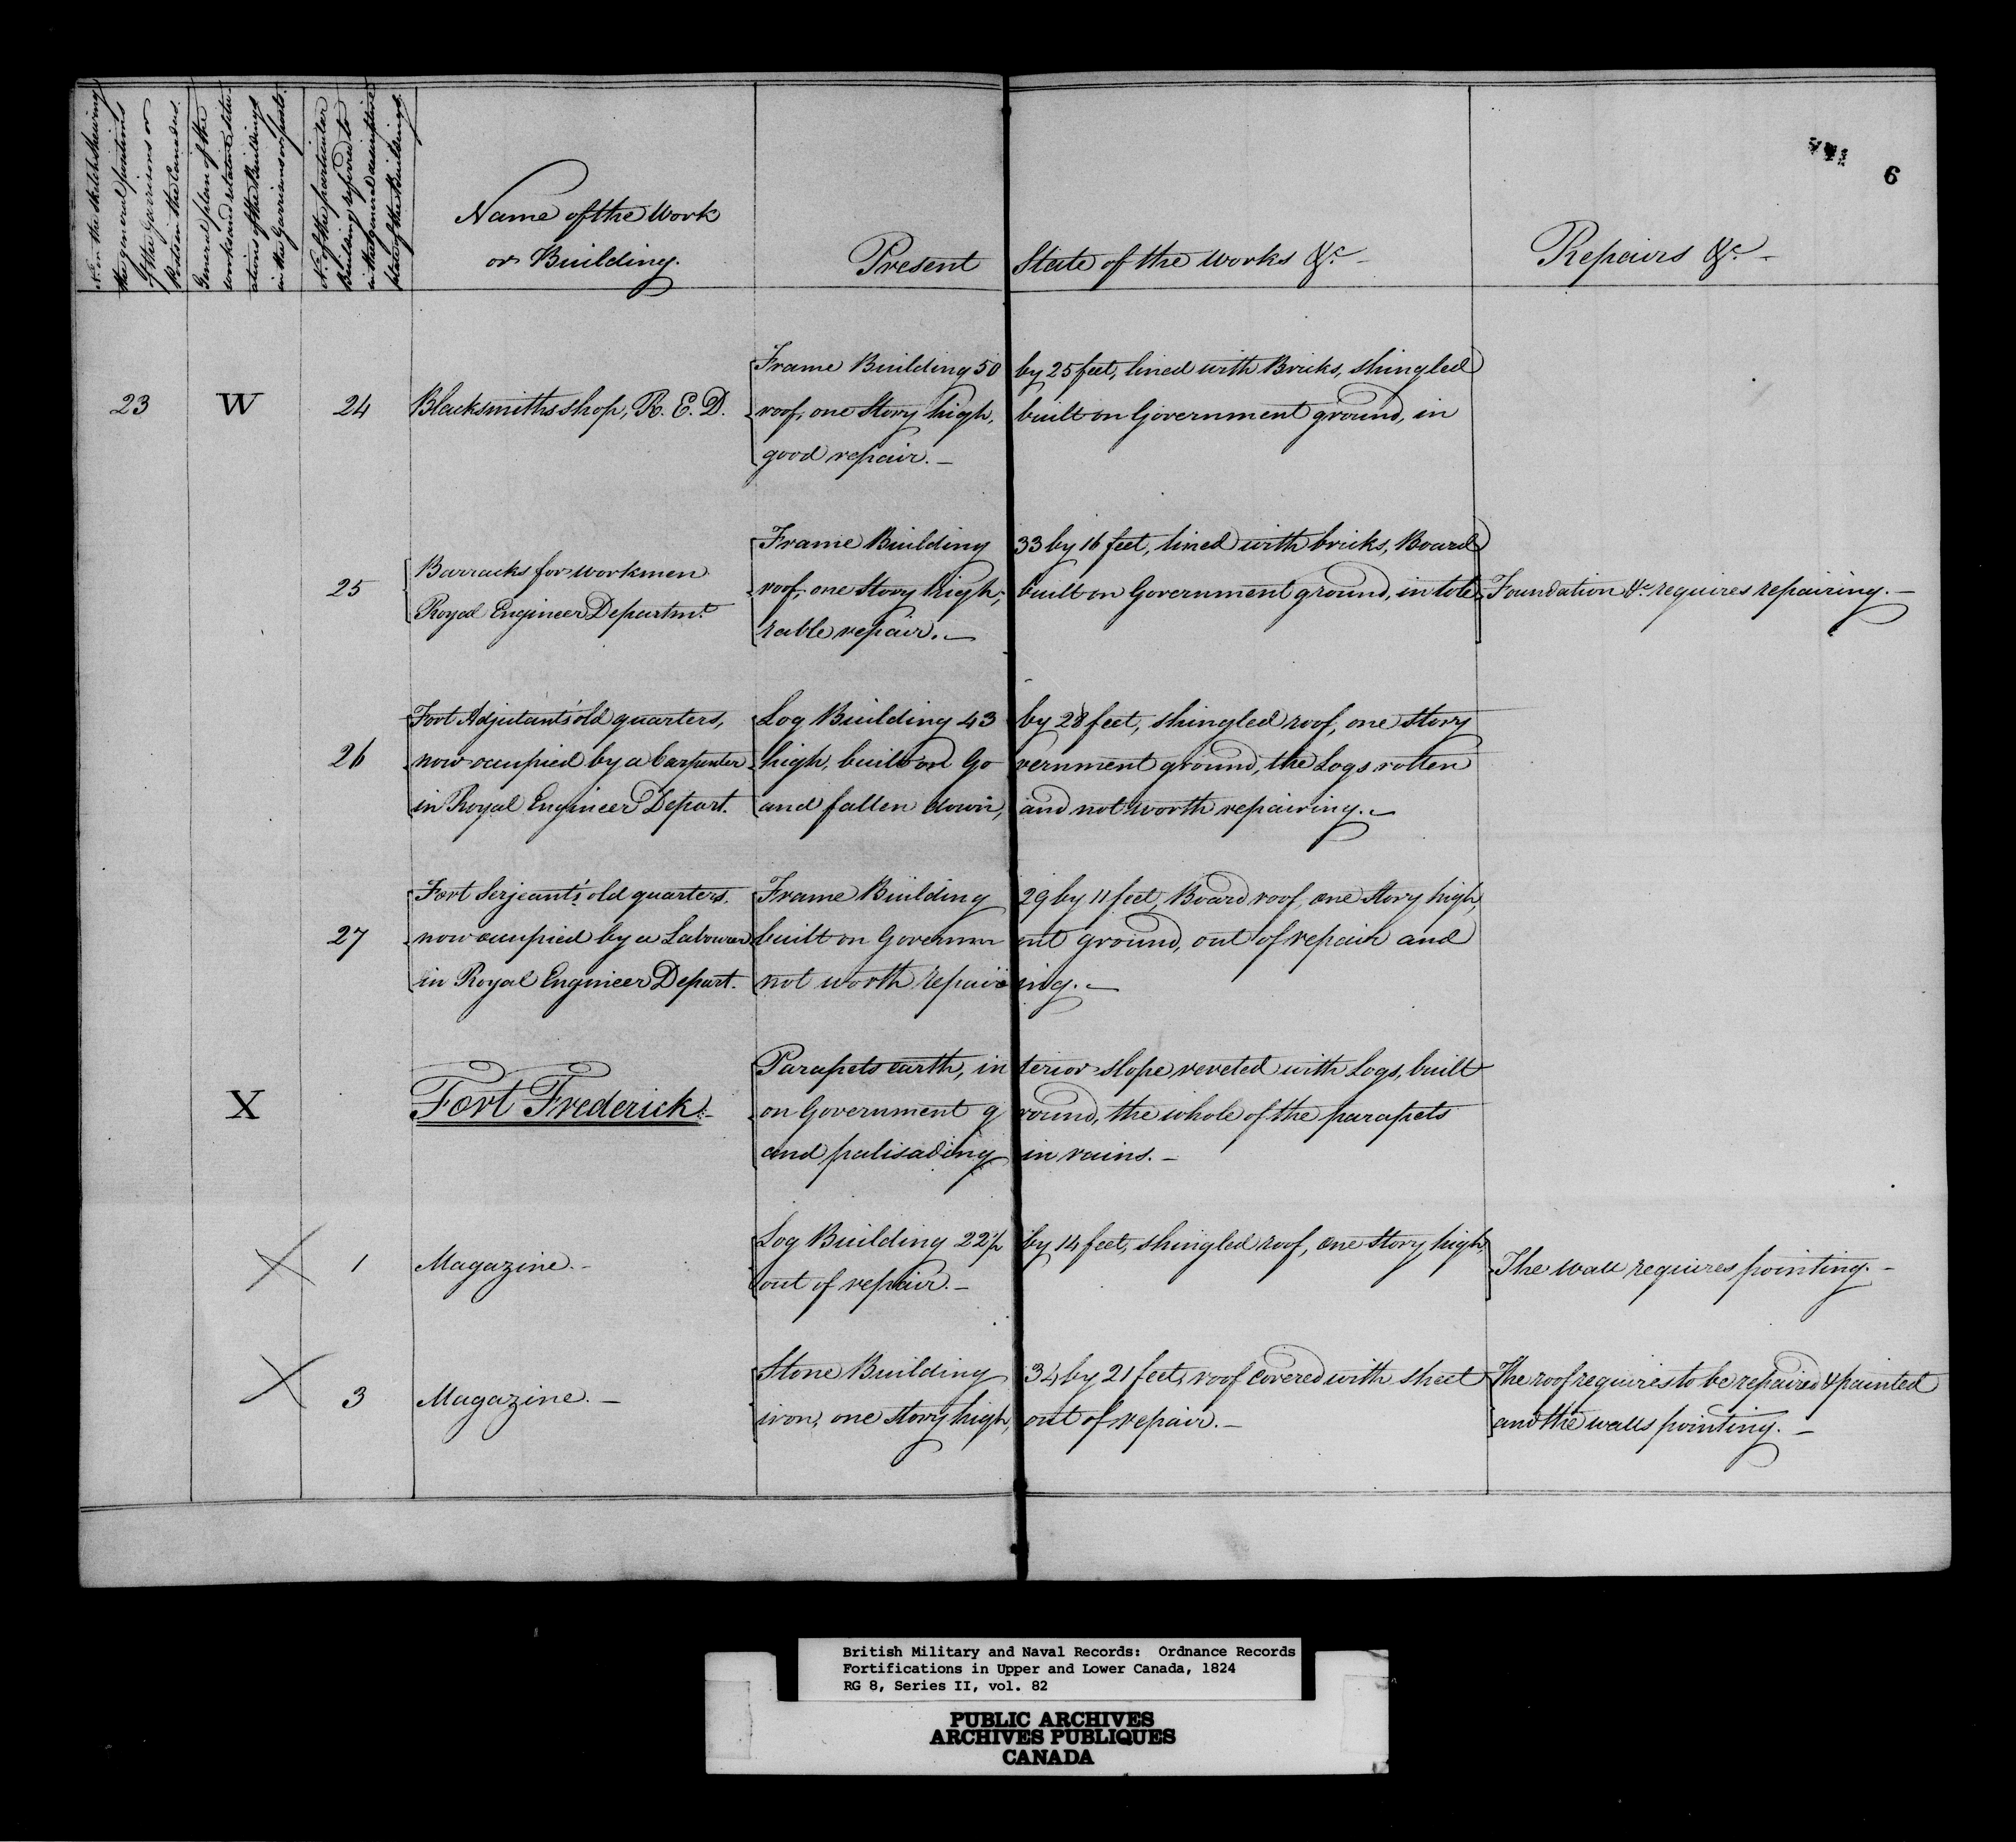 No. in the sketch shewing
the general positions
of the Garrisons or
Posts in the Canadas.
General plan of the
works and relative situ-
ations of the Buildings
in the Garrisons or posts.
No. of the particular
Building referred to
in the general descriptive
plan of the Buildings.
Name of the Work
or Building.
Present State of the works &c. -
Repairs &c. -
6
23 W 24 Blacksmiths shop, R. E. D.
Frame Building 50 by 25 feet, lined with Bricks, shingled
roof, one Story high, built on Government ground, in
good repair. -
25 Barracks for workmen
Royal Engineer Departmt.
Frame Building 33 by 16 feet, lined with bricks, Board
roof, one Story high, built on Government ground, in tole
rable repair. -
Foundation &c. requires repairing. -
26 Fort Adjutants' old quarters,
now occupied by a Carpenter
in Royal Engineer Depart.
Log Building 43 by 28 feet, shingled roof, one Story
high, built on Government ground, the Logs rotten
and fallen down, and not worth repairing. -
27 Fort Serjeant's old quarters.
now occupied by a Labourer
in Royal Engineer Depart.
Frame Building 29 by 11 feet, Board roof, one Story high,
built on Government ground, out of repair and
not worth repairing. -
X Fort Frederick. -
Parapets earth, interior slope reveted with Logs, built
on Government ground, the whole of the parapets
and palisading in ruins. -
1 Magazine. -
Log Building 22½ by 14 feet, shingled roof, one Story high,
out of repair. -
The wall requires pointing. -
3 Magazine. -
Stone Building 34 by 21 feet, roof covered with sheet
iron, one Story high, out of repair. -
The roof requires to be repaired & painted
and the walls pointing. -
British Military and Naval Records: Ordnance Records
Fortifications in Upper and Lower Canada, 1824
RG 8, Series II, vol. 82
PUBLIC ARCHIVES
ARCHIVES PUBLIQUES
CANADA